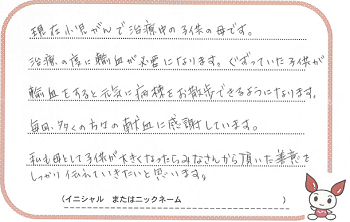 現在小児がんで治療中の子供の母です。
治療の度に輸血が必要になります。ぐずっていた子供が
輸血をすると元気に病棟をお散歩できるようになります。
毎日、多くの方々の献血に感謝しています。
私も母として子供が大きくなったらみなさんから頂いた善意を
しっかり伝えていきたいと思います。
(イニシャル またはニックネーム )